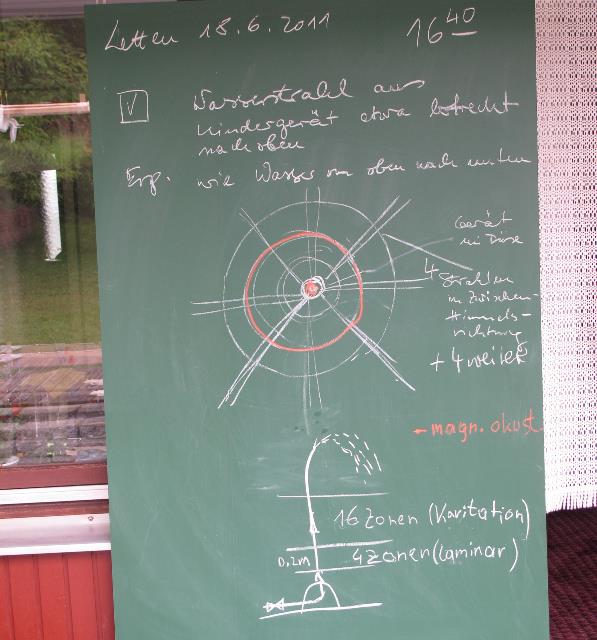 Letten 18.6.2011 16 40
V
Wasserstrahl aus
Kindergerät etwa lotrecht
nach oben
Erg. wie Wasser von oben nach unten
Gerät
mit Düse
4 Strahlen
in Zwischen-
Himmels-
richtung
+ 4 weitere
- magn. okust.
16 Zonen (Kavitation)
0,2m 4 Zonen (laminar)